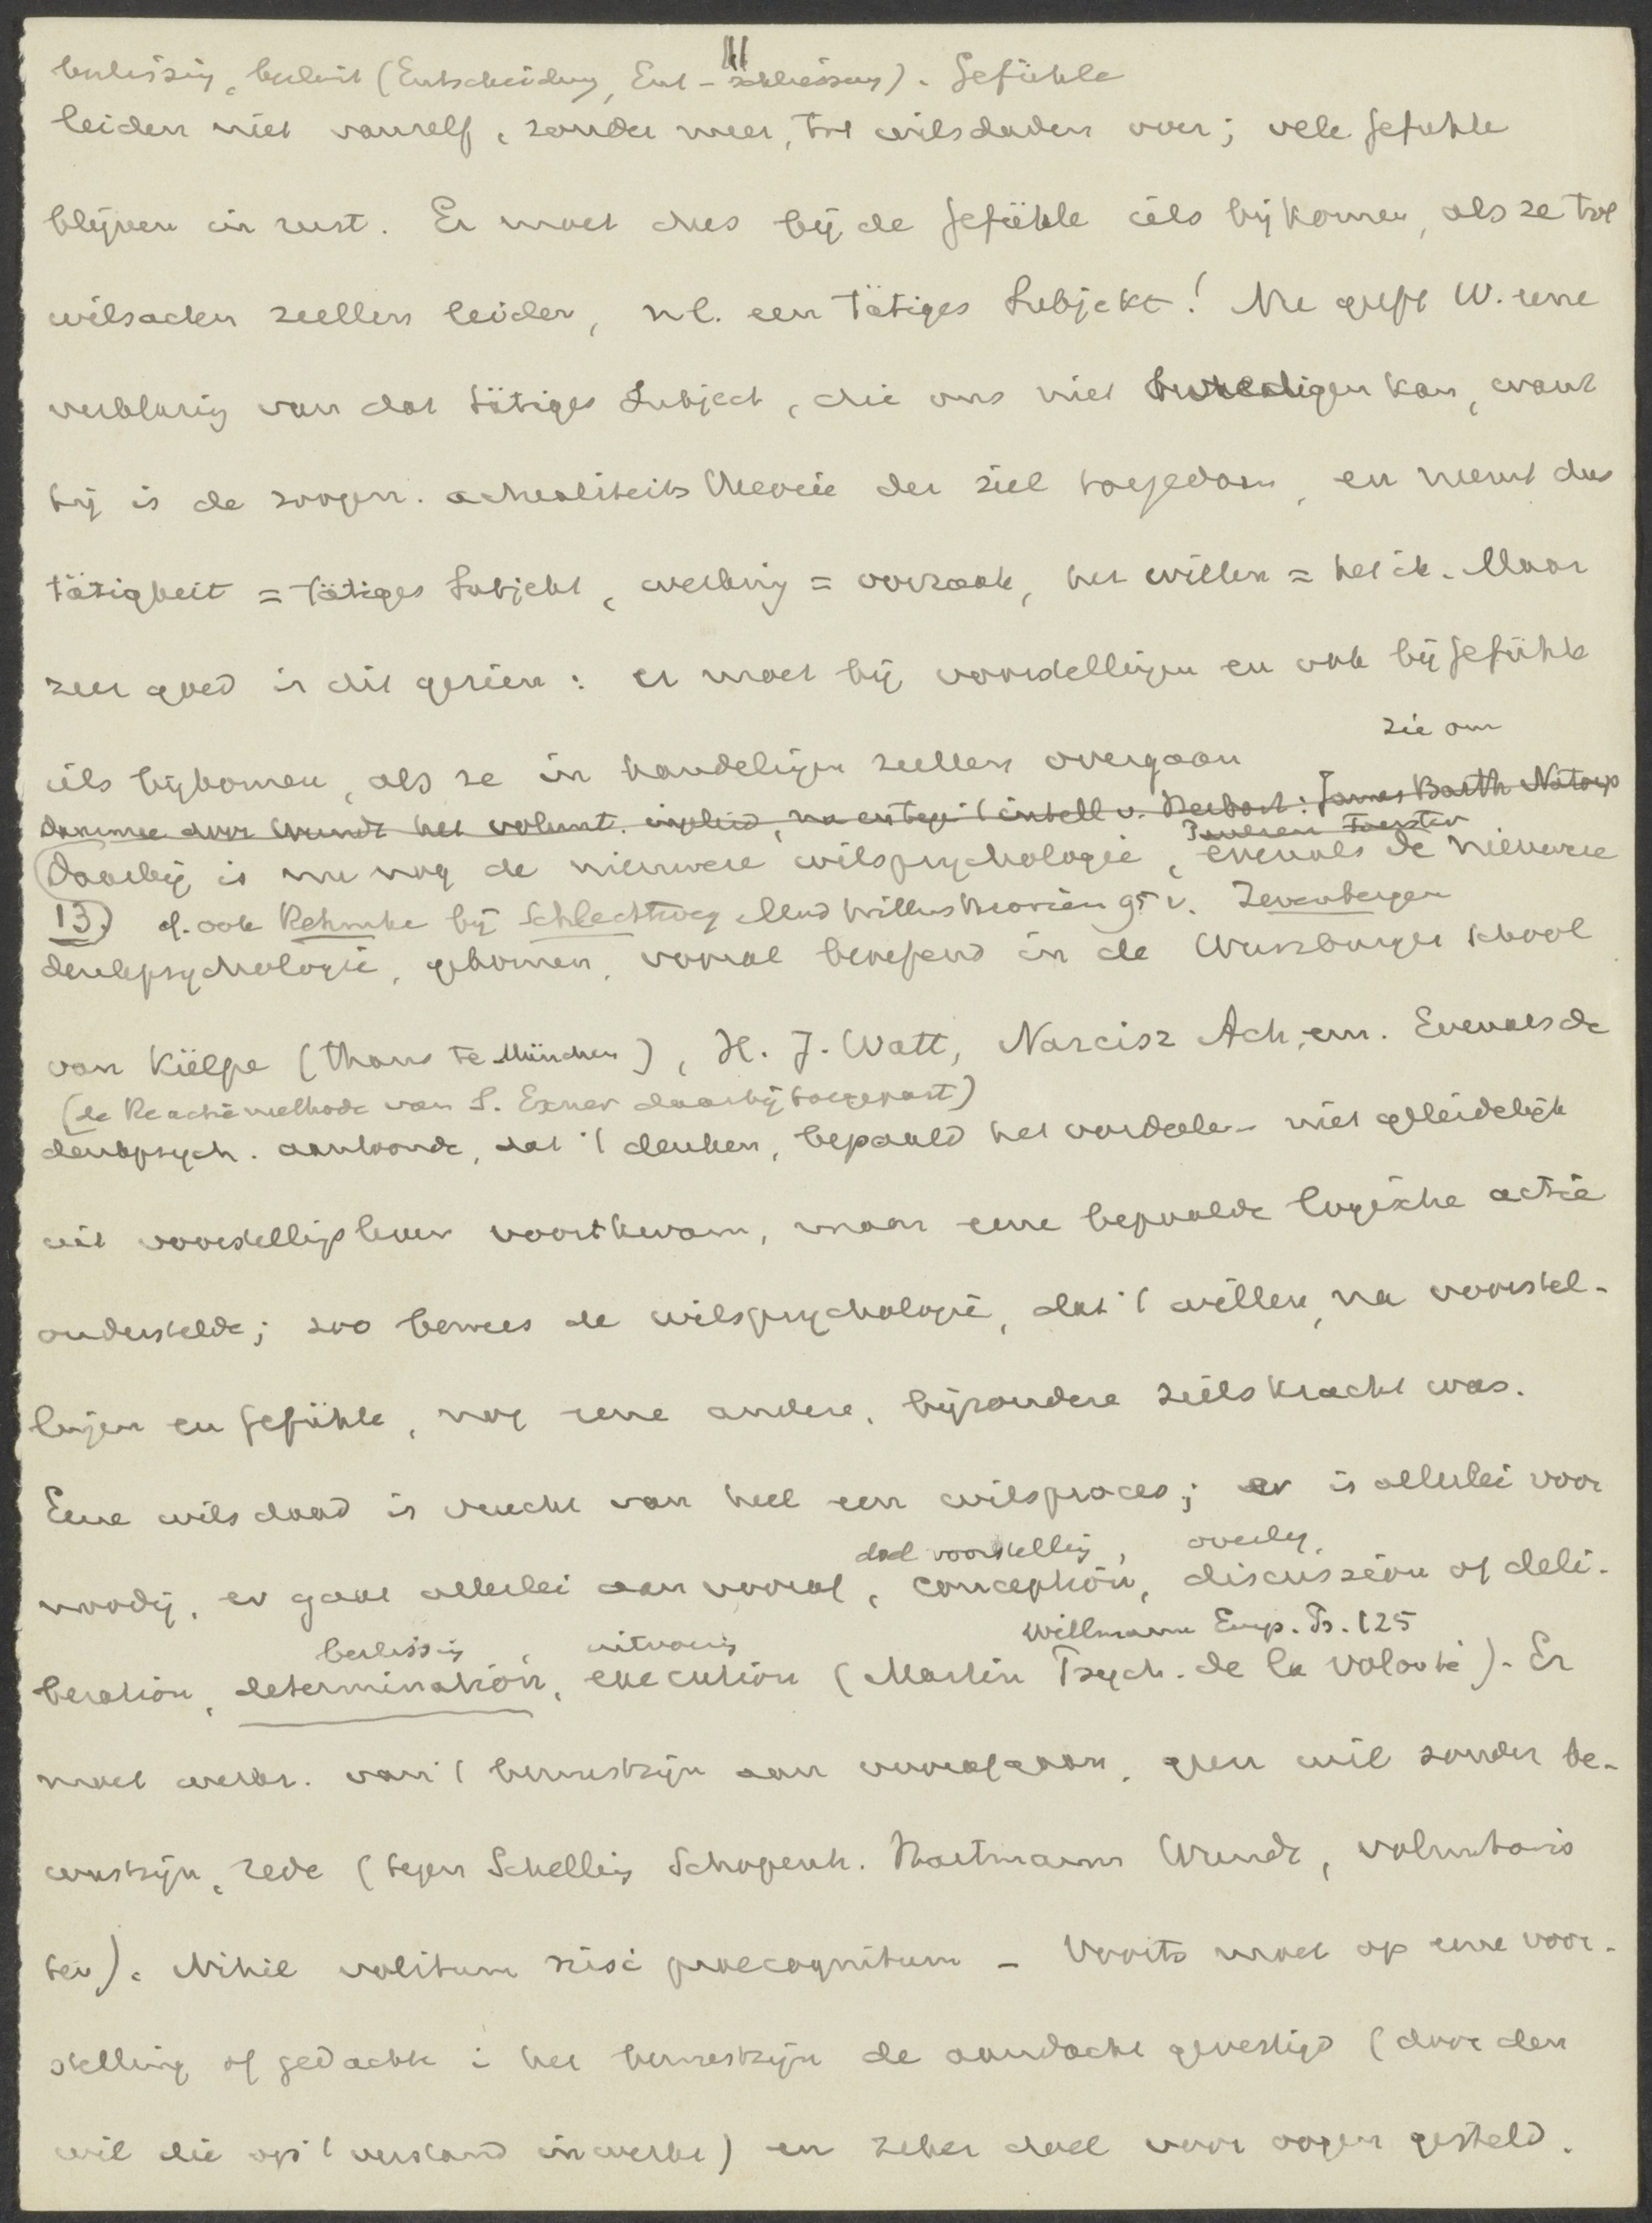 beslissing, besluit (Entscheidung, Ent-schliessung). Gefühle
leiden niet vanzelf, zonder meer, tot wilsdaden over; vele gefuhle
blijven in rust. Er moet dus bij de gefühle iets bijkomen, als ze tot
wilsaden zullen leiden, nl. een tätiges Subjekt! Nu geeft W. eene
verklaring van dat tätiges Subject, die ons niet bevredigen kan, want
hij is de zoogen. actualiteitstheorie der ziel toegedaan, en neemt dus
tätigkeit = tätiges Subjekt, werking = oorzaak, het willen = het ik. Maar
zeer goed is dit gezien: er moet bij voorstellingen en ook bij gefühle
zie om
iets bijkomen, als ze in handelingen zullen overgaan
Daarmee door Wundt het volunt. , na en tegen 't intell v. Herbart: James Barth Natorp
Paulsen Foerster
Daarbij is nu nog de nieuwere wilspsychologie, evenals de nieuwere
13) cf. ook Rehmke bij Schlechtweg v. Zevenbergen
denkpsychologie, gekomen, vooral beoefend in de Wurzburger school
van Külpe (thans te München), H. J. Watt, Narcisz Ach, enz. Evenals de
(de Reactiemethode van S. Exner daarbij toegepast)
denkpsych. aantoonde, dat 't denken, bepaald het oordeelen niet geleidelijk
uit voorstellingsleven voortkwam, maar eene bepaalde logische actie
onderstelde; zoo bewees de wilspsychologie, dat 't willen, na voorstel-
lingen en gefühle, nog eene andere, bijzondere zielskracht was.
Eene wilsdaad is vrucht van heel een wilsproces; er is allerlei voor
doel voorstelling, overleg,
noodig, er gaat allerlei aan vooraf, conception, discussion of deli-
beslissing, uitvoering Willmann Emp. Ps. 125
beration, determination, execution (Martin Psych. de la Volonté). Er
moet werk. van 't bewustzijn aan voorafgaan, geen wil zonder be-
wustzijn, rede (tegen Schelling Schopenh. Hartmann Wundt, voluntaris
ten). Nihil volitum nisi praecognitum - Voorts moet op eene voor-
stelling of gedachte i het bewustzijn de aandacht gevestigd (door den
wil die op 't verstand inwerkt) en zeker doel voor oogen gesteld.